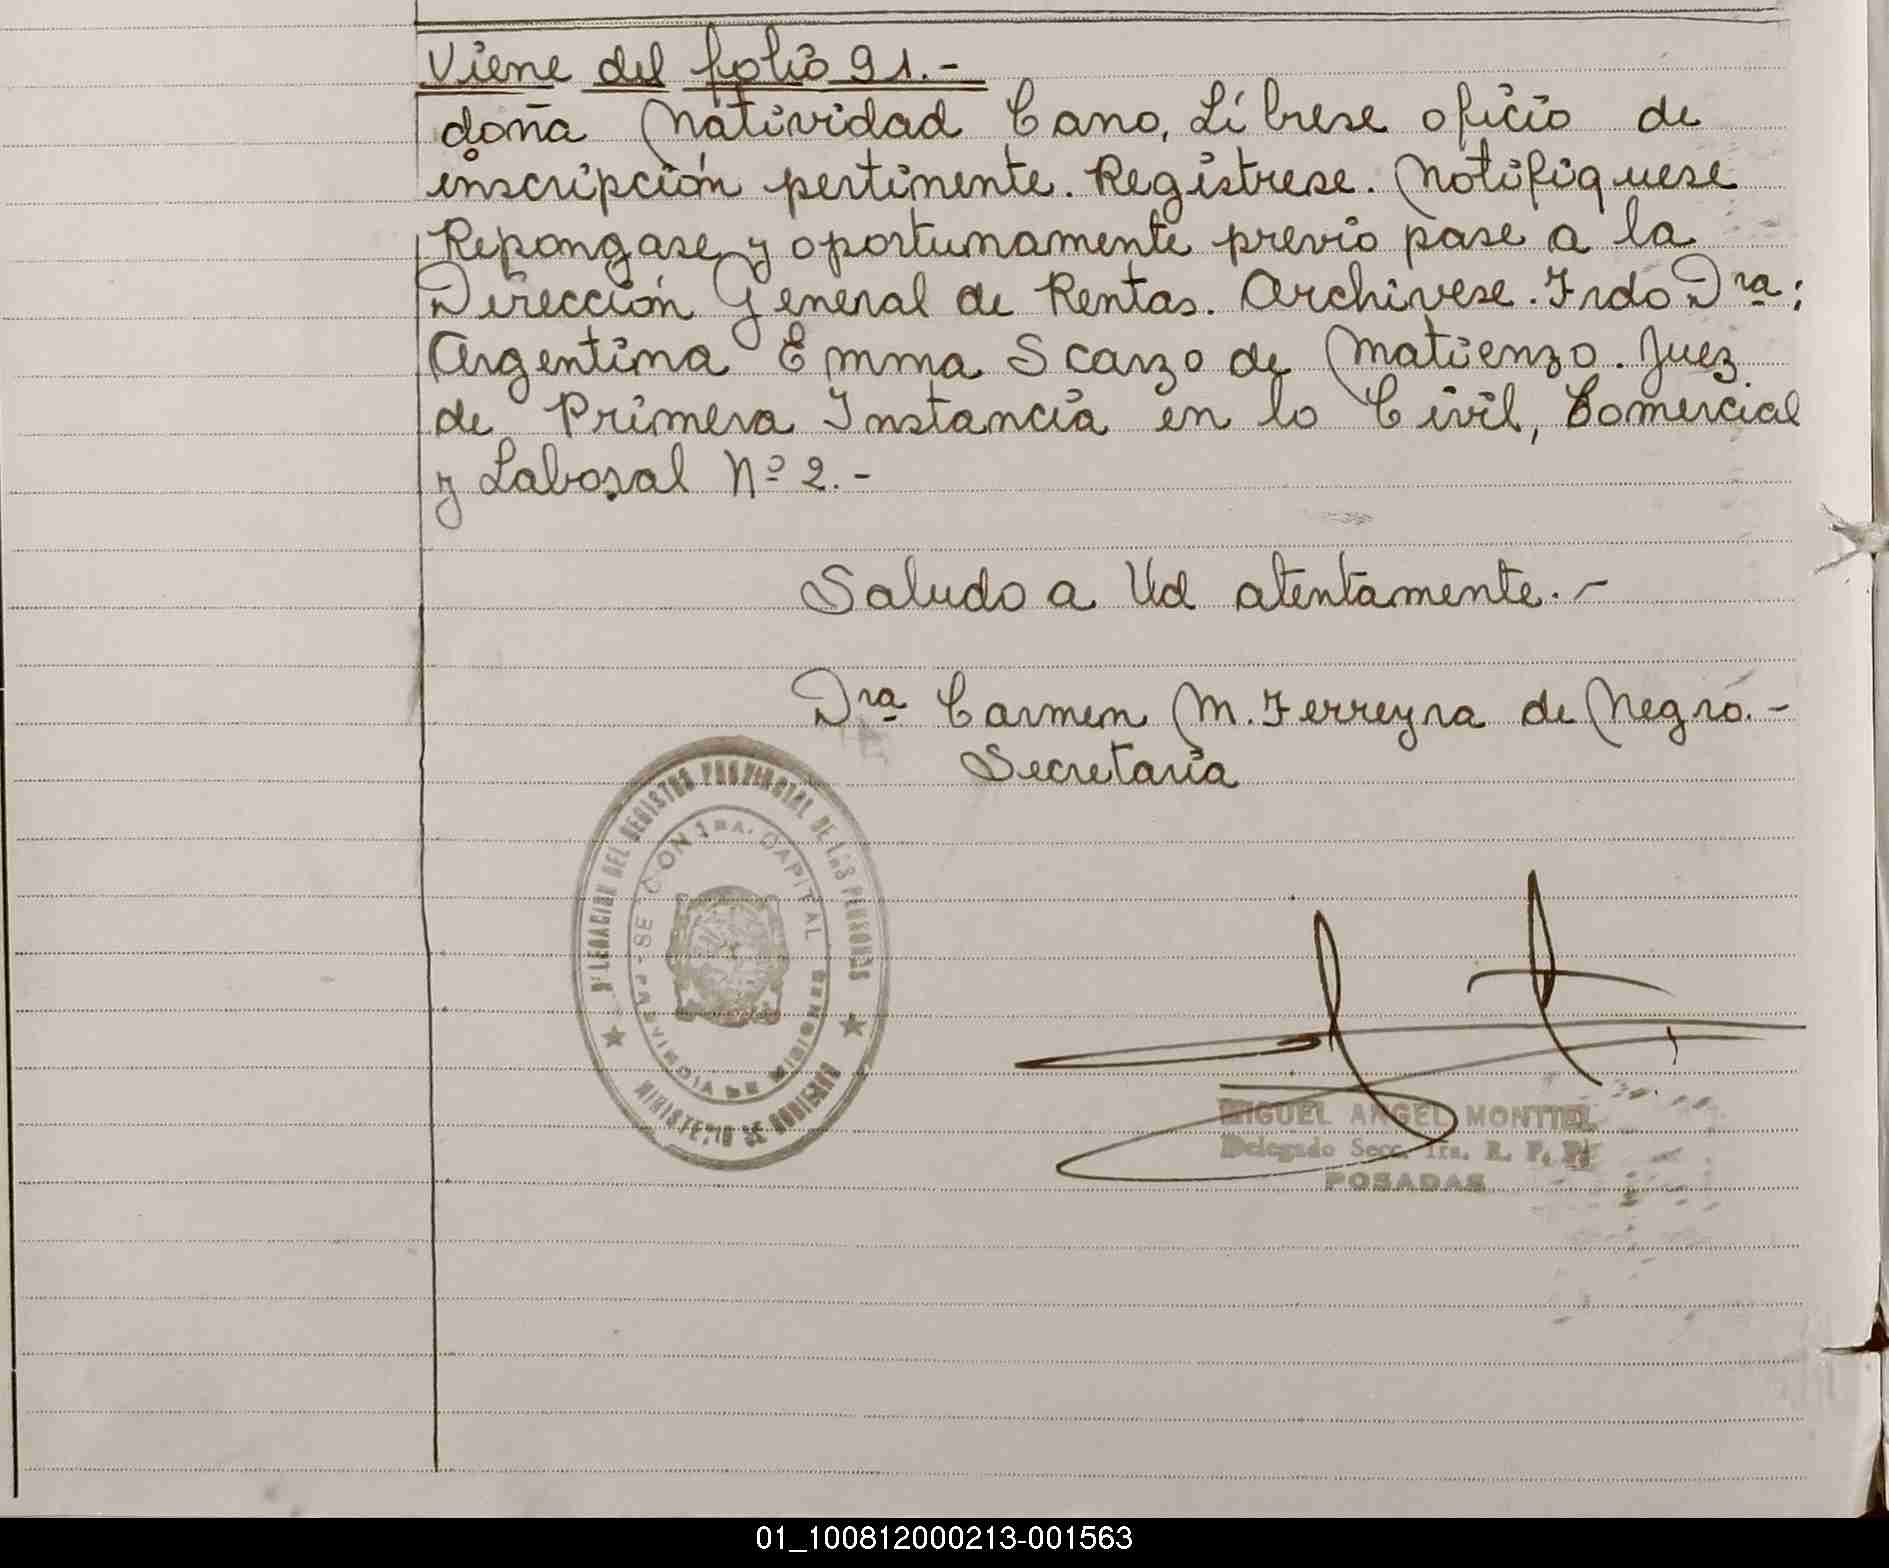 Viene del folio 91.-
doña Natividad Cano, Líbrese oficio de
inscripción pertinente. Registrese. Notifiquese
Repongase y oportunamente previo pase a la
Dirección General de Rentas. Archivese. Frdo Dra:
Argentina Emma Scarzo de Matienzo. Juez
de Primera Instancia en lo Civil, Comercial
y Laboral Nº 2.-
Saludo a Ud atentamente.-
Dra Carmen M. Ferreyra de Negro.-
Secretaria
DELEGACION DEL REGISTRO PROVINCIAL DE LAS PERSONAS
SECCION 1RA. CAPITAL
PROVINCIA DE MISIONES
MINISTERIO DE GOBIERNO
MIGUEL ANGEL MONTIEL
Delegado Secc. 1ra. R. P. P.
POSADAS
01_100812000213-001563